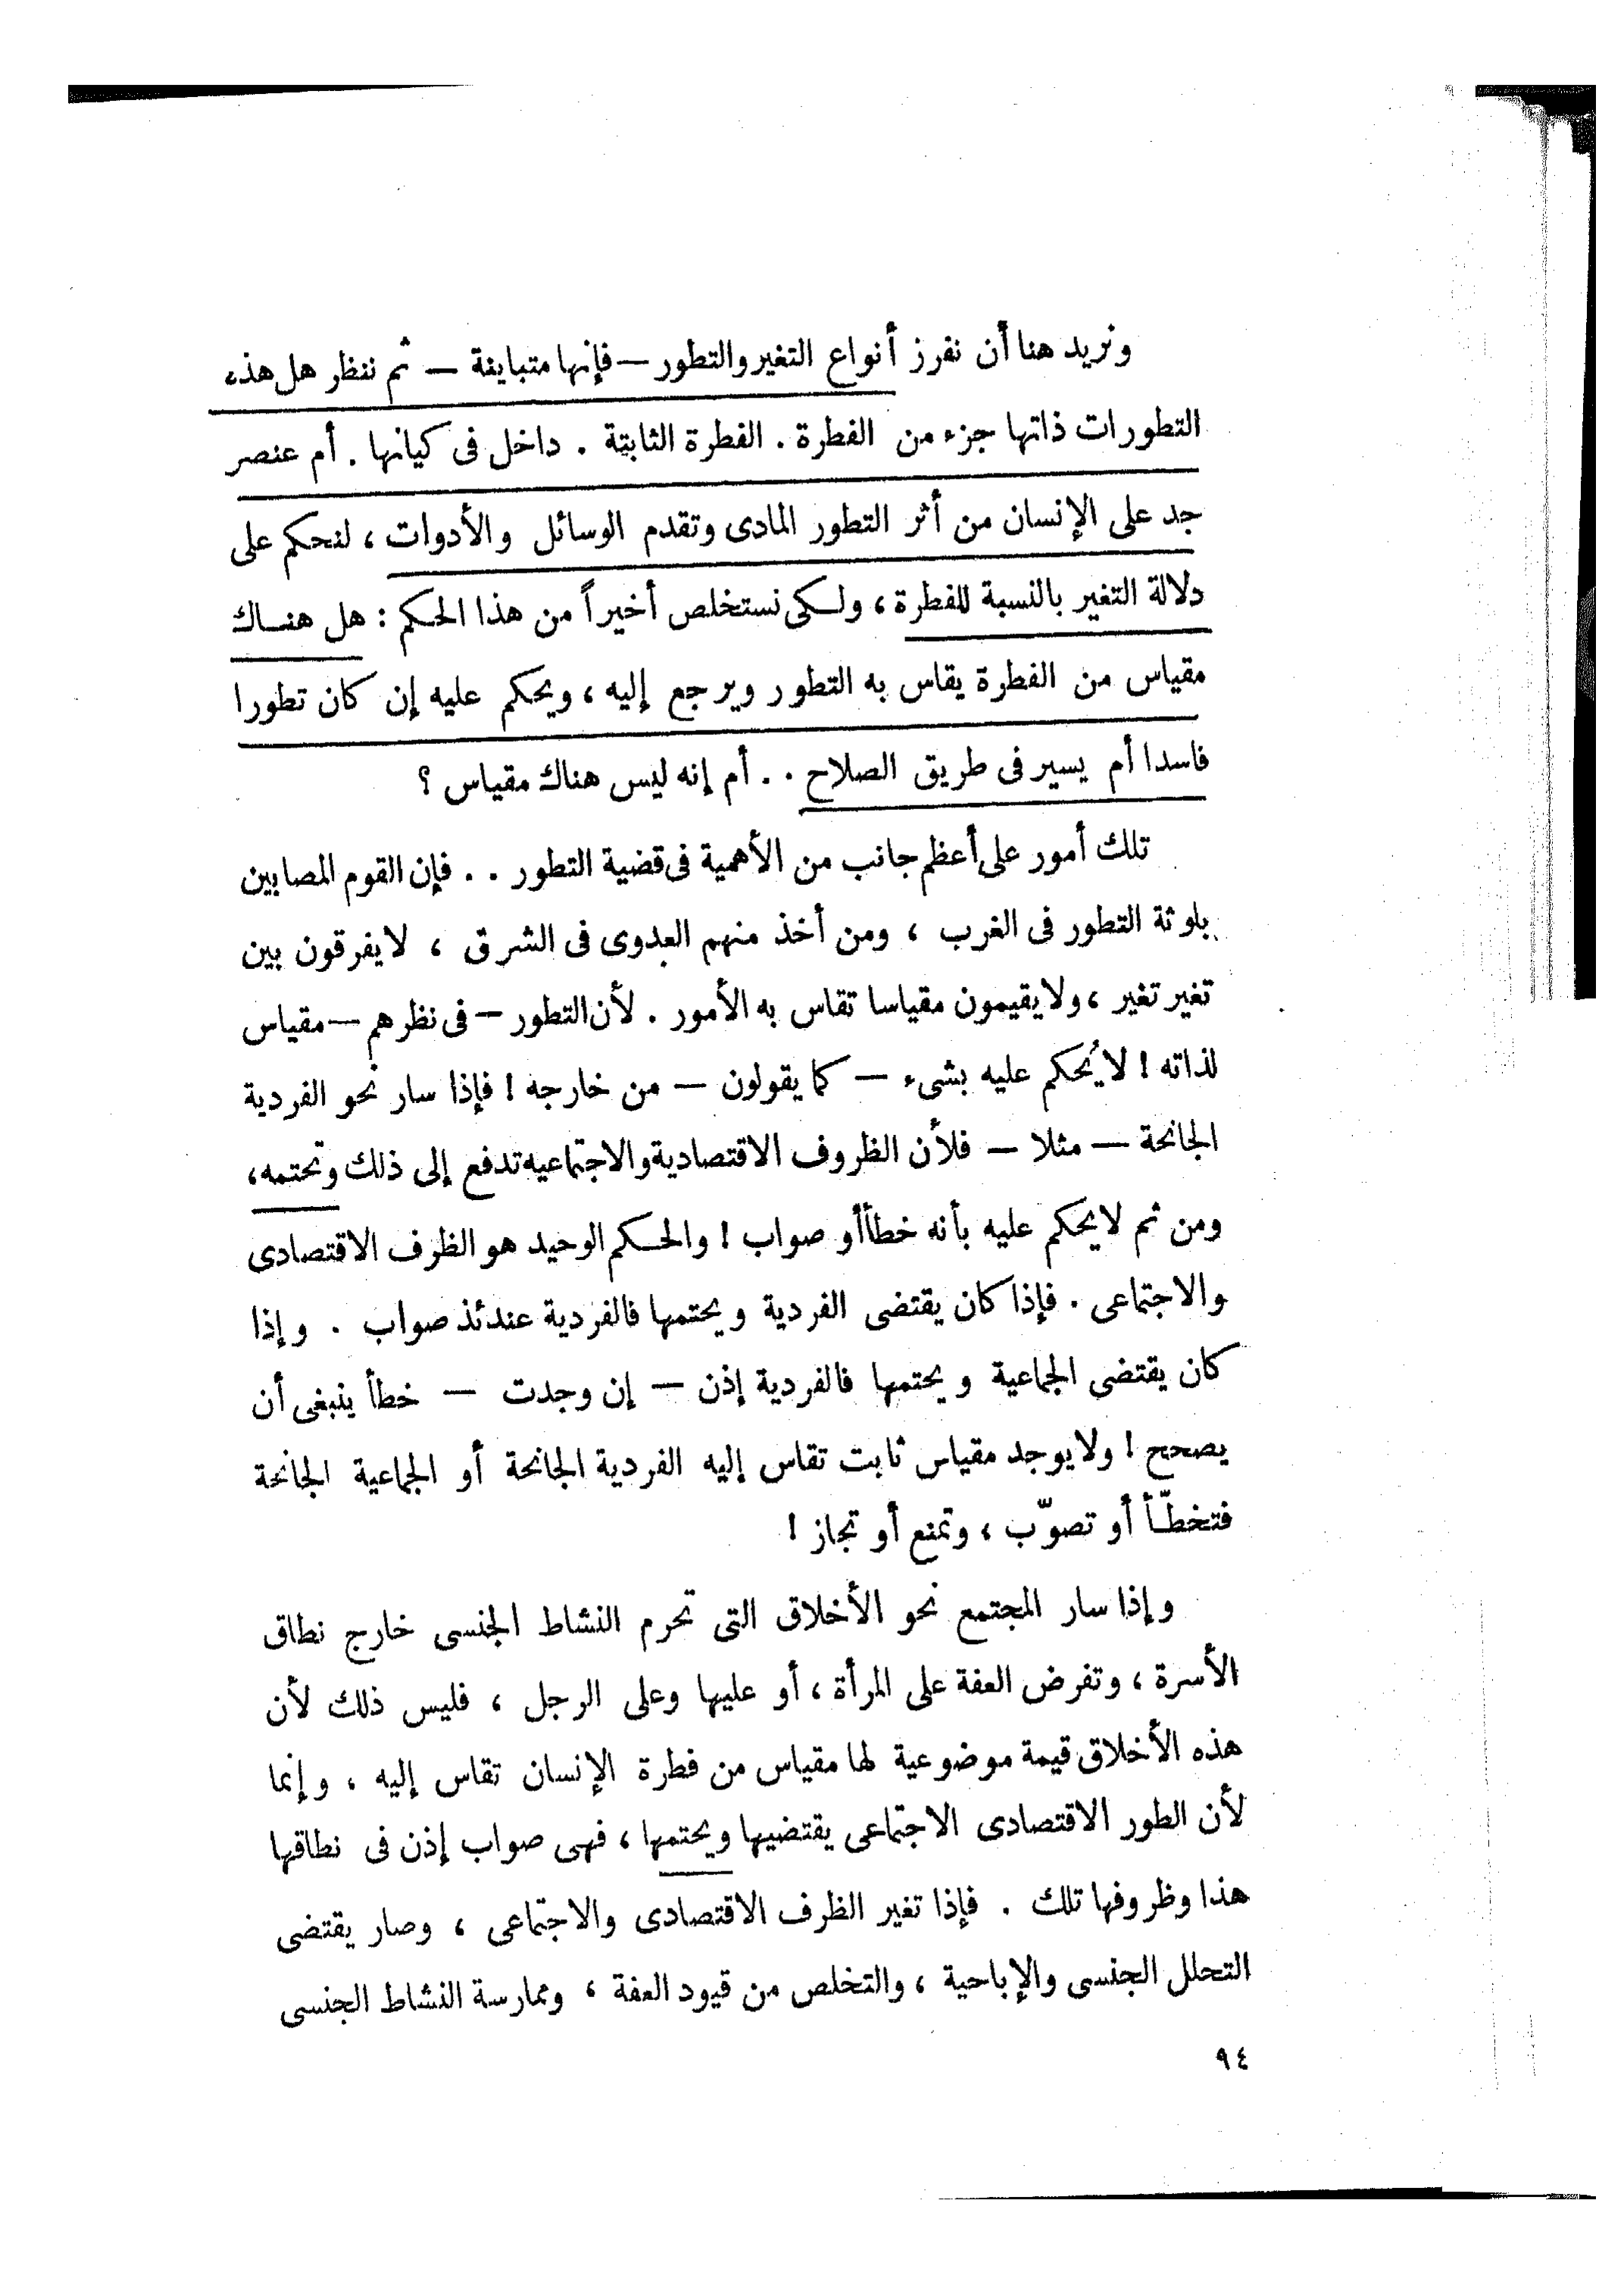 ونريد هنا أن نفرز أنواع التغير والتطور — فإنها متباينة — ثم ننظر هل هذه
التطورات ذاتها جزء من الفطرة . الفطرة الثابتة . داخل فى كيانها . أم عنصر
جد على الإنسان من أثر التطور المادى وتقدم الوسائل والأدوات ، لنحكم على
دلالة التغير بالنسبة للفطرة ، ولكى نستخلص أخيراً من هذا الحكم : هل هناك
مقياس من الفطرة يقاس به التطور ويرجع إليه ، ويحكم عليه إن كان تطورا
فاسدا أم يسير فى طريق الصلاح . . أم إنه ليس هناك مقياس ؟
تلك أمور على أعظم جانب من الأهمية فى قضية التطور . . فإن القوم المصابين
بلوثة التطور فى الغرب ، ومن أخذ منهم العدوى فى الشرق ، لا يفرقون بين
تغير تغير ، ولا يقيمون مقياسا تقاس به الأمور . لأن التطور — فى نظرهم — مقياس
لذاته ! لا يُحكم عليه بشىء — كما يقولون — من خارجه ! فإذا سار نحو الفردية
الجانحة — مثلا — فلأن الظروف الاقتصادية والاجتماعيه تدفع إلى ذلك وتحتمه ،
ومن ثم لا يحكم عليه بأنه خطأ أو صواب ! والحكم الوحيد هو الظرف الاقتصادى
والاجتماعى . فإذا كان يقتضى الفردية ويحتمها فالفردية عندئذ صواب . وإذا
كان يقتضى الجماعية ويحتمها فالفردية إذن — إن وجدت — خطأ ينبغى أن
يصحح ! ولا يوجد مقياس ثابت تقاس إليه الفردية الجانحة أو الجماعية الجانحة
فتخطّأ أو تصوّب ، وتمنع أو تجاز !
وإذا سار المجتمع نحو الأخلاق التى تحرم النشاط الجنسى خارج نطاق
الأسرة ، وتفرض العفة على المرأة ، أو عليها وعلى الرجل ، فليس ذلك لأن
هذه الأخلاق قيمة موضوعية لها مقياس من فطرة الإنسان تقاس إليه ، وإنما
لأن الطور الاقتصادى الاجتماعى يقتضيها ويحتمها ، فهى صواب إذن فى نطاقها
هذا وظروفها تلك . فإذا تغير الظرف الاقتصادى والاجتماعى ، وصار يقتضى
التحلل الجنسى والإباحية ، والتخلص من قيود العفة ، وممارسة النشاط الجنسى
٩٤